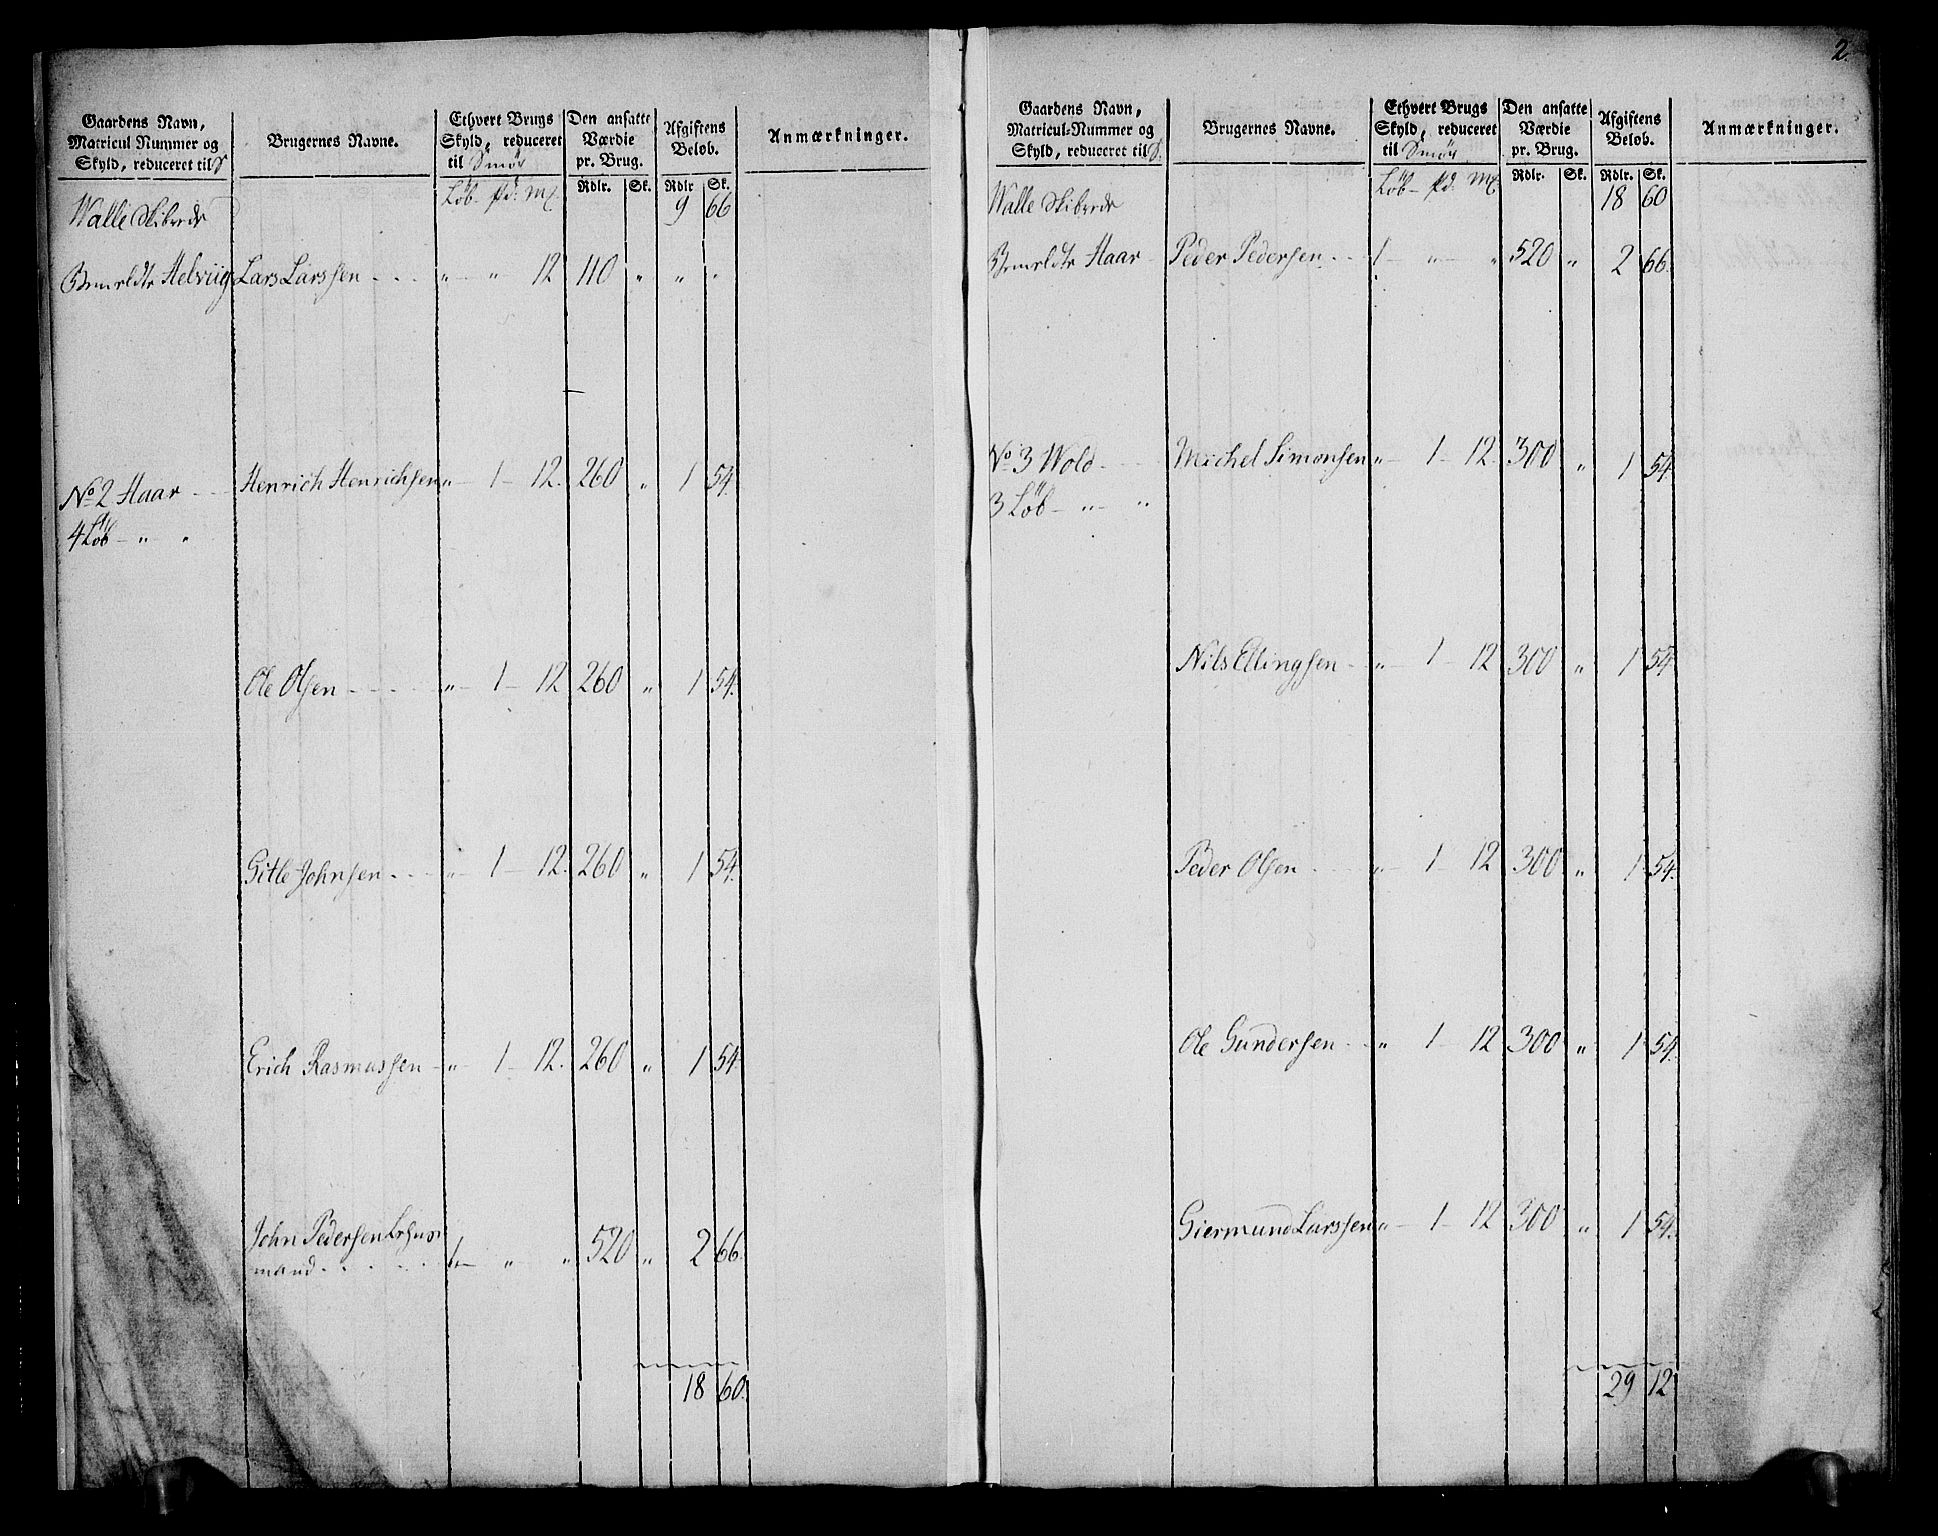 Gaardens Navn,
Matricul Nummer og
Skyld, reduceret til S
Brugernes Navne.
Ethvert Brugs
Skyld, reduceret
til Smör
Den ansatte
Værdie
pr. Brug.
Afgiftens
Beløb.
Anmærkninger.
Löb pd. Mk
Rdlr. Sk. Rdlr Sk.
Walle Skibrede 9 66
Helviig Lars Larssen - - - " - " 12 110 " " "
No 2 Haar - - Henrich Henrichsen " - 1 - 12. 260 " 1 54.
4 Löb - " "
Ole Olsen - - - - - " - 1 - 12 260 " 1 54.
Gitle Johnsen - - - " - 1 - 12. 260 " 1 54.
Erich Rasmussen - " - 1 - 12. 260 " 1 54
John Pedersen
mand - - - - 1 - " " 520 " 2 66.
18 60.
2.
Gaardens Navn,
Matricul-Nummer og
Skyld, reduceret til S.
Brugernes Navne.
Ethvert Brugs
Skyld, reduceret
til Smör
Den ansatte
Værdie
pr. Brug.
Afgiftens
Beløb.
Anmærkninger.
Löb - pd. Mk
Rdlr. Sk. Rdlr. Sk.
Walle Skibrede 18 60
Haar - Peder Pedersen - - 1 - " - " 520 " 2 66.
No 3 Wold - - Michel Simonsen " - 1 - 12. 300 " 1 54.
3 Löb - " - "
Nils Ellingsen - " - 1 - 12 300 " 1 54
Peder Olsen - - - " - 1 - 12 300 " 1 54.
Ole Gundersen - - " 1 - 12 300 " 1 54.
Giermund Larssen " - 1 - 12 300 " 1 54.
29 12